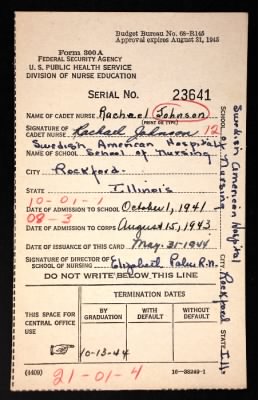 Budget Bureau No. 68-R145
Approval expires August 31, 1945
Form 300A
FEDERAL SECURITY AGENCY
U. S. PUBLIC HEALTH SERVICE
DIVISION OF NURSE EDUCATION
SERIAL NO. 23641
NAME OF CADET NURSE Rachael Johnson
(PRINT OR TYPE)
SIGNATURE OF CADET NURSE Rachael Johnson 12
Swedish American Hospital
NAME OF SCHOOL School of Nursing
CITY Rockford
STATE Illinois
10-01-1
DATE OF ADMISSION TO SCHOOL October 1, 1941
08-3
DATE OF ADMISSION TO CORPS August 15, 1943
DATE OF ISSUANCE OF THIS CARD May-31-1944
SIGNATURE OF DIRECTOR OF SCHOOL OF NURSING Elizabeth R.N.
DO NOT WRITE BELOW THIS LINE
THIS SPACE FOR CENTRAL OFFICE USE
TERMINATION DATES
BY GRADUATION
WITH DEFAULT
WITHOUT DEFAULT
10-13-44
(4409)
21-01-4
SCHOOL OF NURSING Swedish American Hospital
CITY Rockford
STATE Ill.